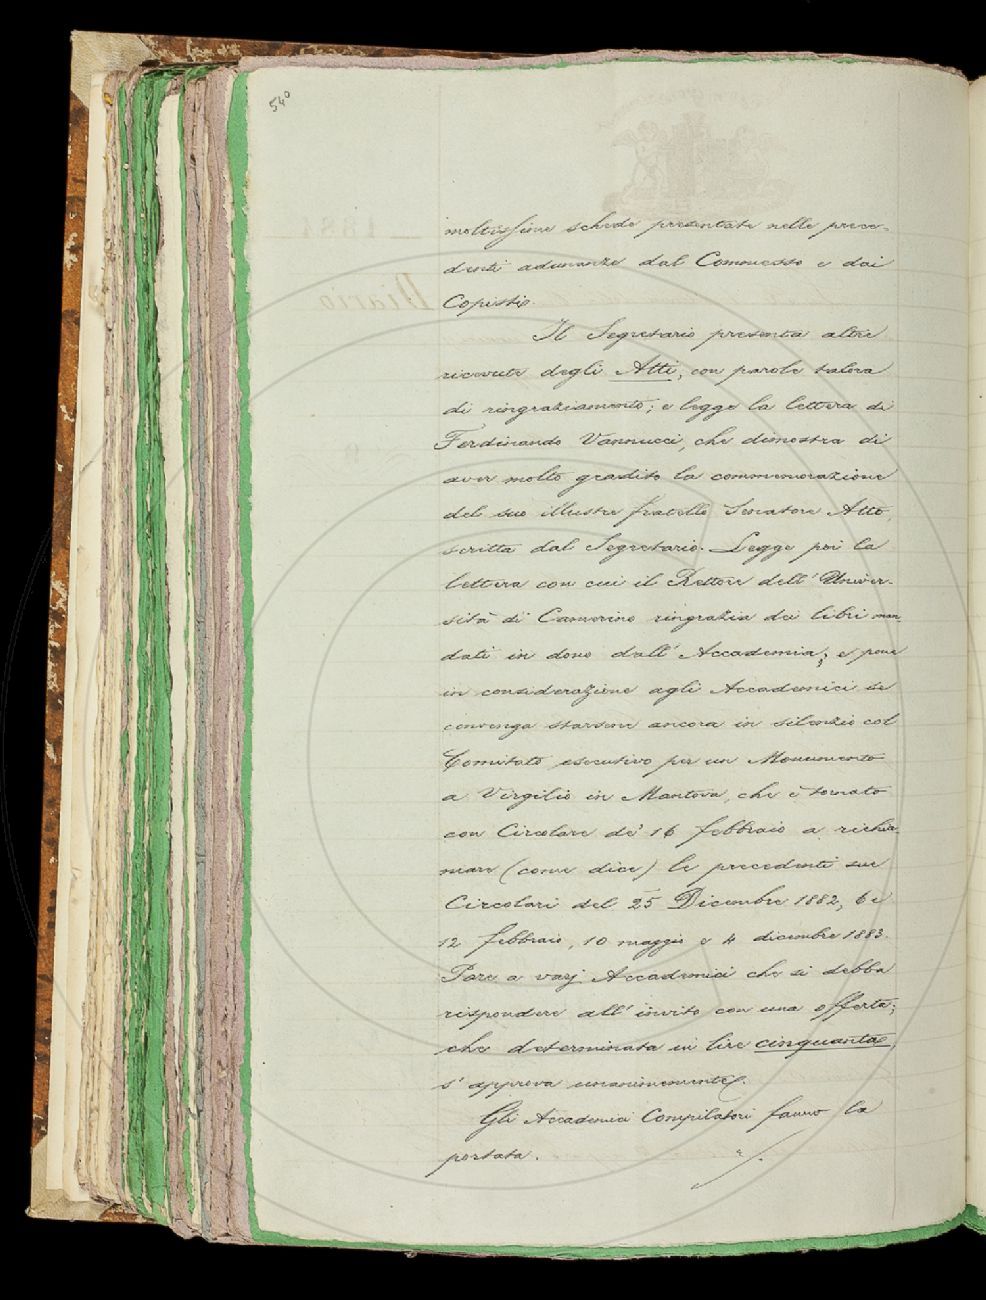 540
moltissime schede presentate nelle prece-
denti adunanze dal Commesso e dai
Copisti.
Il Segretario presenta altre
ricevute degli Atti, con parole talora
di ringraziamento; e legge la lettera di
Ferdinando Vannucci, che dimostra di
aver molto gradito la commemorazione
del suo illustre fratello Senatore Atto,
scritta dal Segretario. Legge poi la
lettera con cui il Rettore dell' Univer-
sità di Camerino ringrazia dei libri man-
dati in dono dall' Accademia; e pone
in considerazione agli Accademici se
convenga starsene ancora in silenzio col
Comitato esecutivo per un Monumento
a Virgilio in Mantova, che è tornato
con Circolare de' 16 febbraio a richia-
mare (come dice) le precedenti sue
Circolari del 25 Dicembre 1882, 6 e
12 febbraio, 10 maggio e 4 dicembre 1883.
Pare a varj Accademici che si debba
rispondere all' invito con una offerta;
che determinata in lire cinquanta,
s' approva unanimemente.
Gli Accademici Compilatori fanno la
portata.